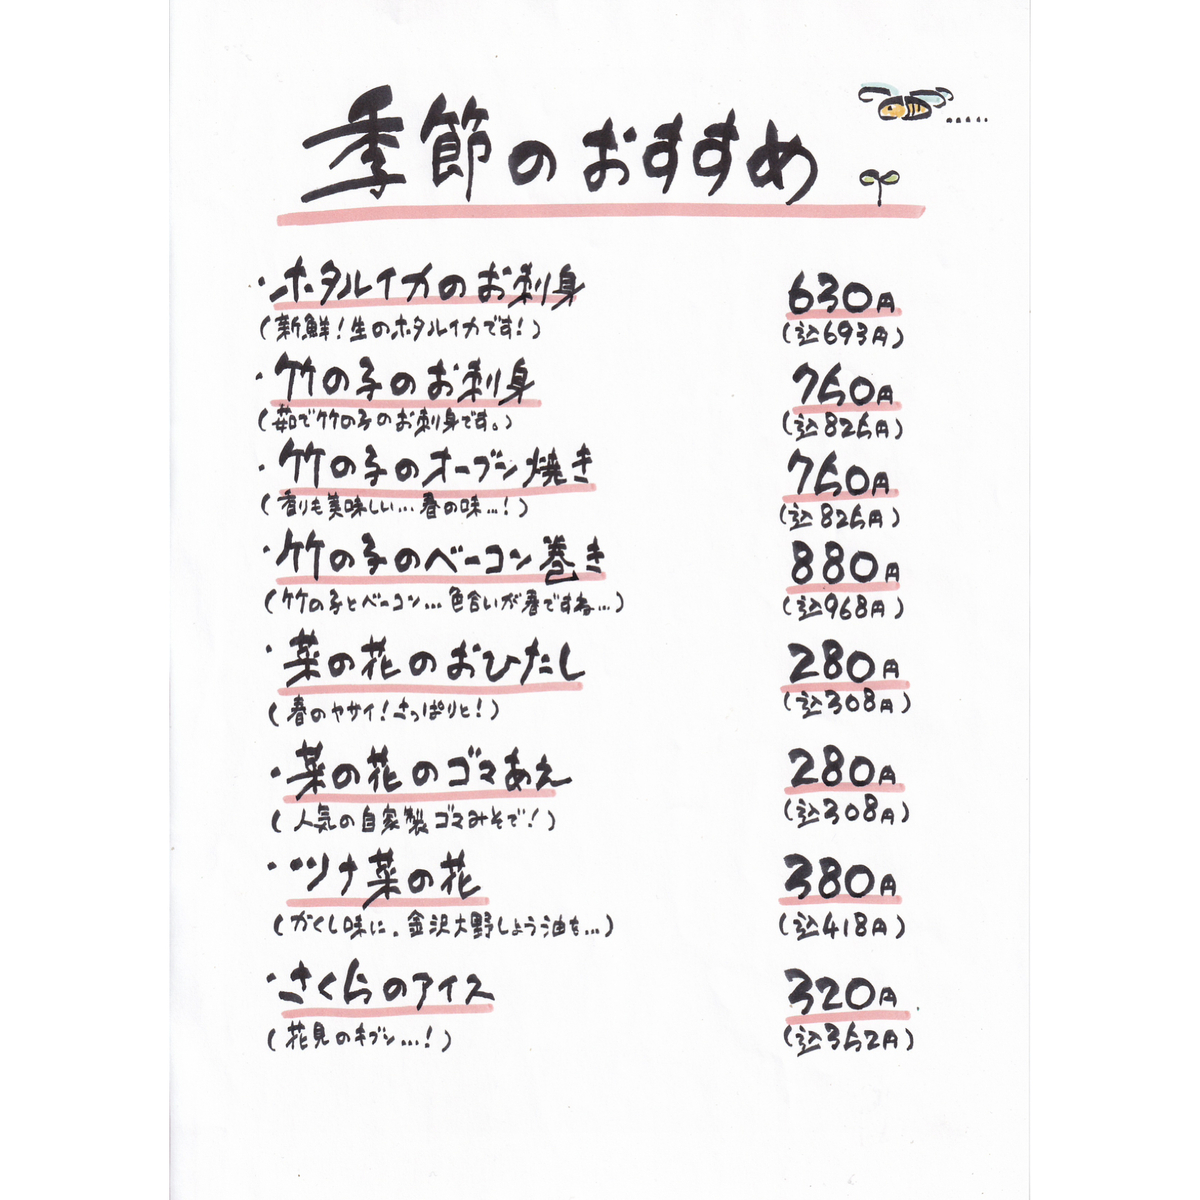 季節のおすすめ
・ホタルイカのお刺身 630円
(新鮮!生のホタルイカです!) (込693円)
・竹の子のお刺身 750円
(茹で竹の子のお刺身です。) (込825円)
・竹の子のオーブン焼き 750円
(香りも美味しい…春の味…!) (込825円)
・竹の子のベーコン巻き 880円
(竹の子とベーコン…色合いが春ですね…) (込968円)
・菜の花のおひたし 280円
(春のヤサイ!さっぱりと!) (込308円)
・菜の花のゴマあえ 280円
(人気の自家製ゴマみそで!) (込308円)
・ツナ菜の花 380円
(かくし味に、金沢大野しょう油を…) (込418円)
・さくらのアイス 320円
(花見のキブン…!) (込352円)